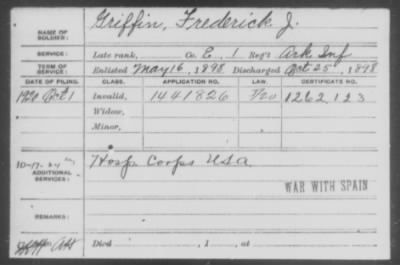 NAME OF SOLDIER: Griffin, Frederick J.
SERVICE: Late rank, Co. E, 1 Reg't Ark Inf
TERM OF SERVICE: Enlisted May 16, 1898 Discharged Oct 25, 1898
DATE OF FILING. CLASS. APPLICATION NO. LAW. CERTIFICATE NO.
1920 Oct 1 Invalid, 1441826 1262123
Widow,
Minor,
ADDITIONAL SERVICES: Hosp Corps U.S.A
WAR WITH SPAIN
REMARKS:
Died , 1 , at